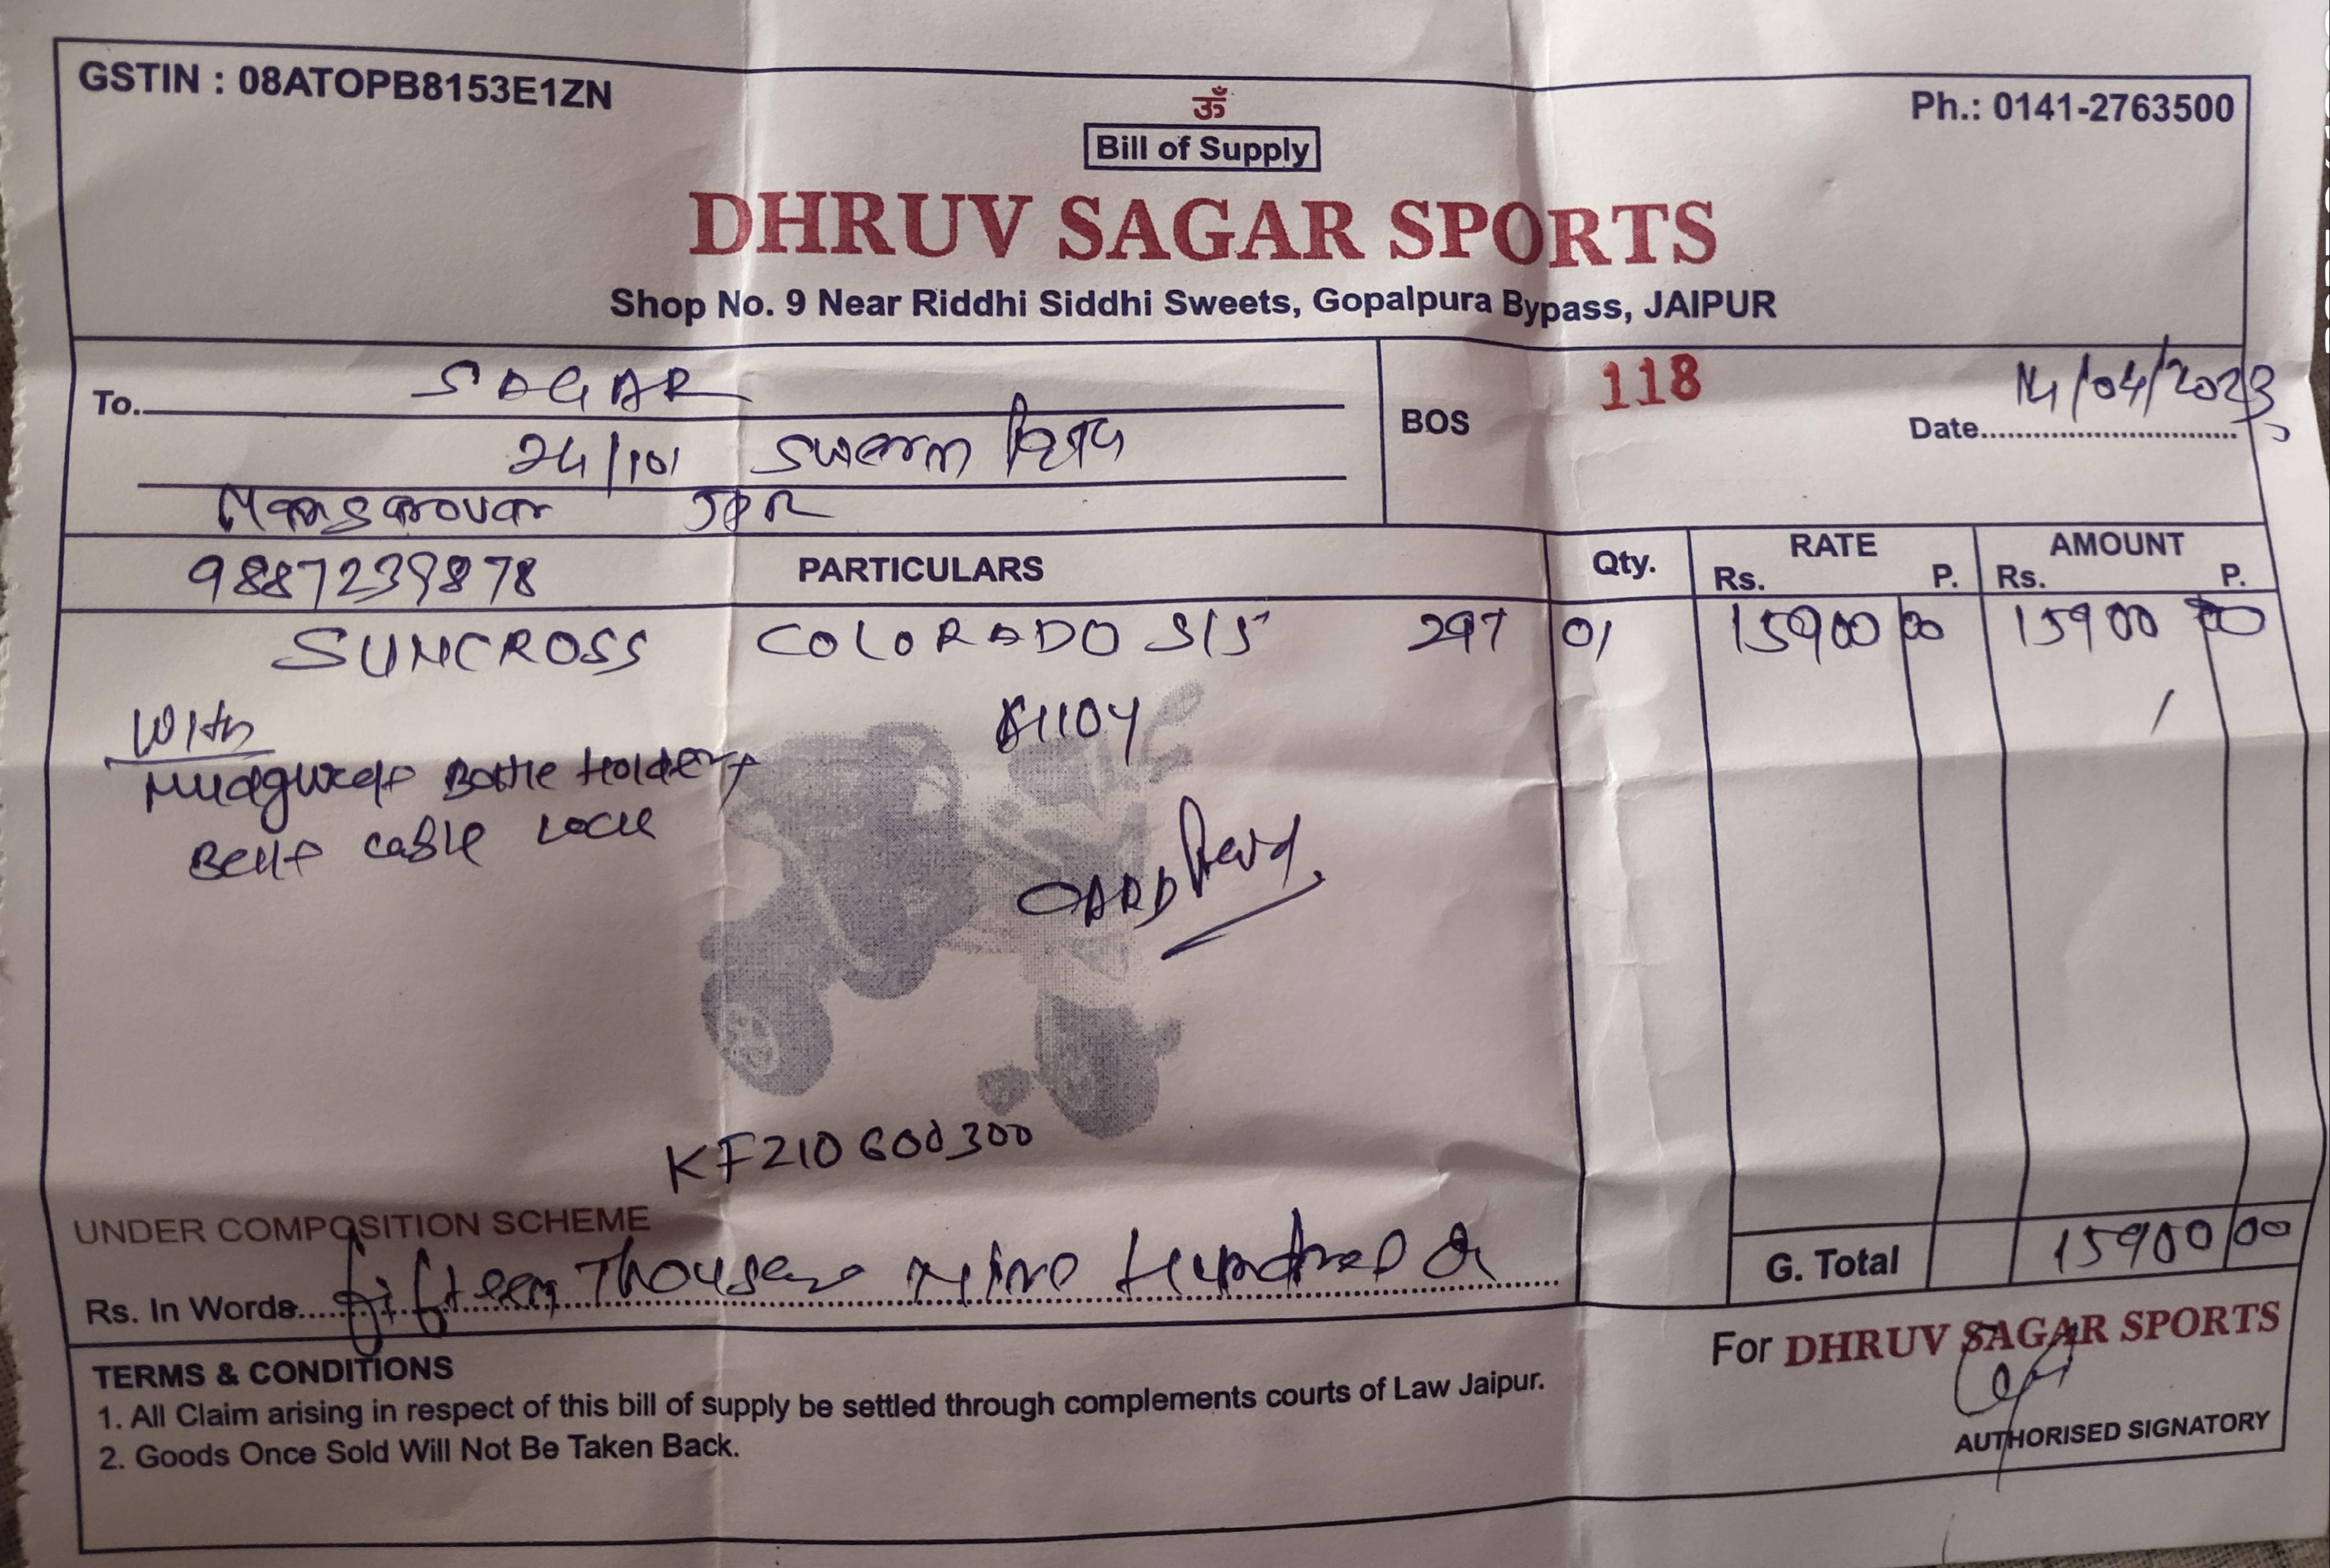 GSTIN : 08ATOPB8153E1ZN
Ph.: 0141-2763500
ॐ
Bill of Supply
DHRUV SAGAR SPORTS
Shop No. 9 Near Riddhi Siddhi Sweets, Gopalpura Bypass, JAIPUR
To. SAGAR
24/101 Swarn पथ
Mansarovar JPR
BOS 118
Date 14/04/2023
9887239878
PARTICULARS Qty. RATE Rs. P. AMOUNT Rs. P.
SUNCROSS COLORADO S/S 297 01 15900 00 15900 00
1104
With
Mudguard+ Bottle Holder+
Bell+ cable Lock
CARD
KF210600300
UNDER COMPOSITION SCHEME
Rs. In Words fifteen Thousand Nine Hundred
G. Total 15900 00
For DHRUV SAGAR SPORTS
AUTHORISED SIGNATORY
TERMS & CONDITIONS
1. All Claim arising in respect of this bill of supply be settled through complements courts of Law Jaipur.
2. Goods Once Sold Will Not Be Taken Back.